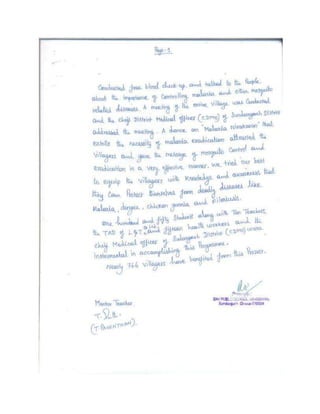 Page-2
Conducted free blood check-up and talked to the People
about the importance of Controlling malaria and other mosquito
related diseases. A meeting of the entire village was Conducted
and the Chief District Medical officer (CDMO) of Sundargarh District
addressed the meeting. A dance on "Malaria Awareness" that
extolls the necessity of malaria eradication attracted the
villagers and gave the message of mosquito Control and
eradication in a very effective manner. We tried our best
to equip the villagers with Knowledge and awareness that
they Can Protect themselves from deadly diseases like
Malaria, dengue, chicken gunia and
One hundred and fifty Students along with Ten Teachers,
the TAD of L&T, and officers, health workers and the
Chief Medical officer of Sundargarh District (CDMO) were
instrumental in accomplishing this Programme.
Nearly 766 villagers have benefited from this Project.
Mentor Teacher
(T. PAVENTHAN)